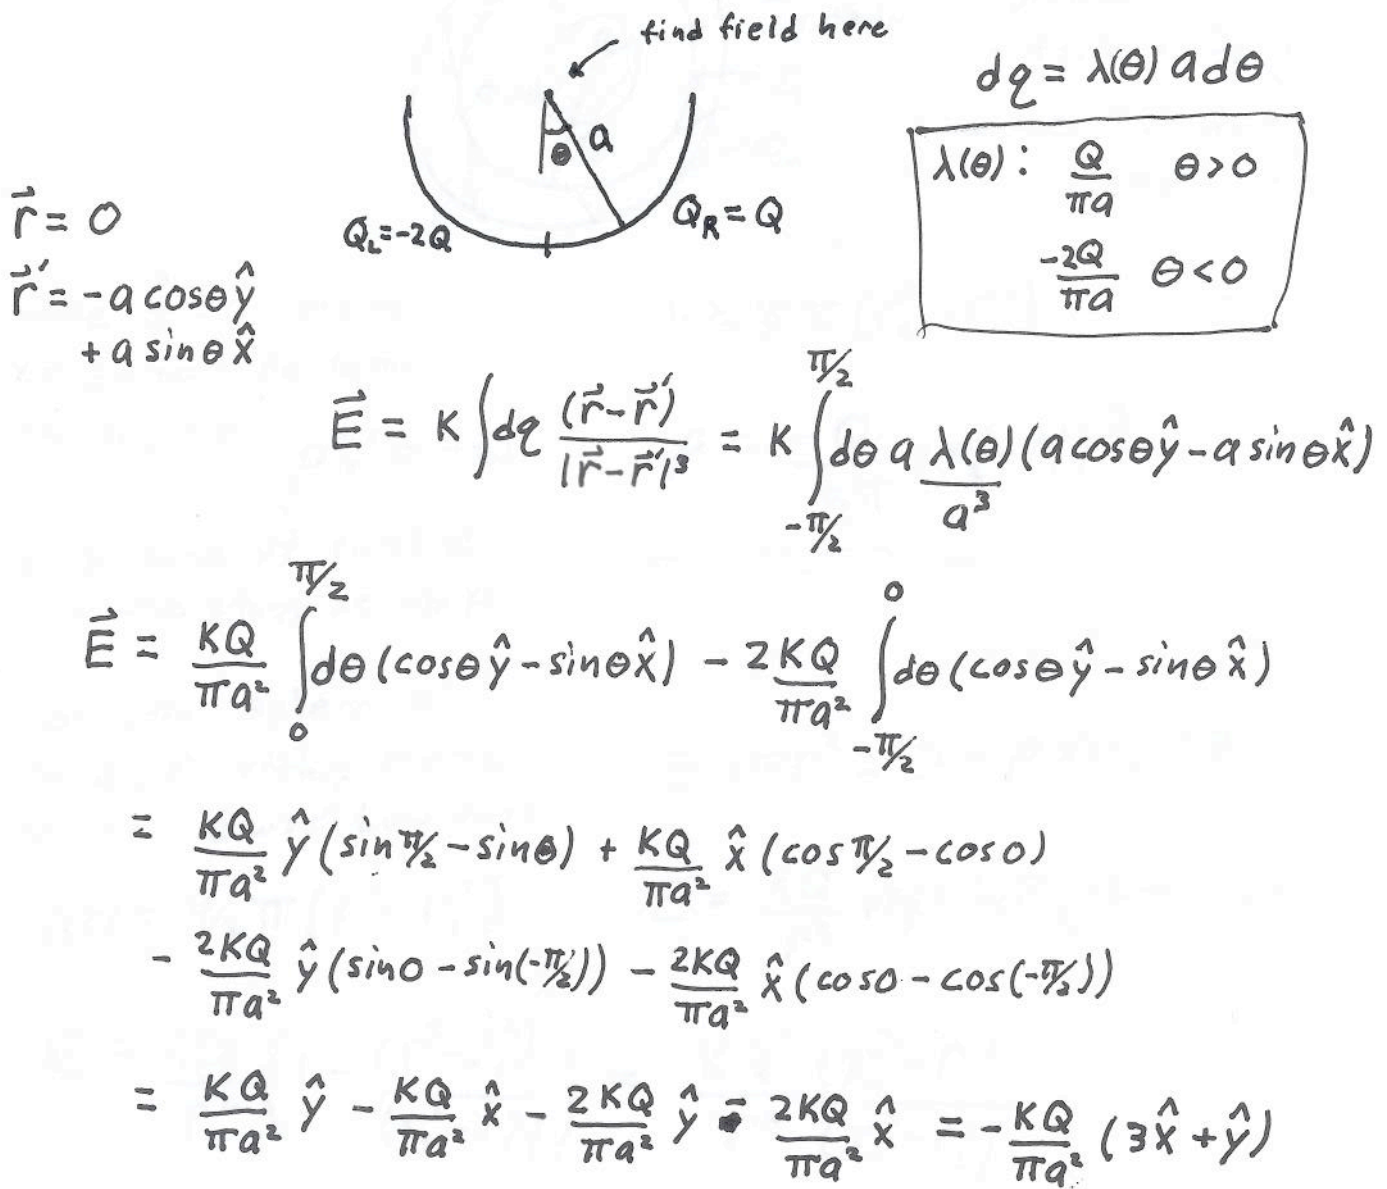 find field here
dq = λ(θ) a dθ
a
θ
λ(θ): Q/πa θ>0
-2Q/πa θ<0
Q_L=-2Q
Q_R=Q
r⃗ = 0
r⃗′ = -a cosθ ŷ
+ a sinθ x̂
E⃗ = K ∫dq (r⃗-r⃗′)/|r⃗-r⃗′|³ = K ∫_{-π/2}^{π/2} dθ a λ(θ)/a³ (a cosθ ŷ - a sinθ x̂)
E⃗ = KQ/πa² ∫_0^{π/2} dθ (cosθ ŷ - sinθ x̂) - 2KQ/πa² ∫_{-π/2}^0 dθ (cosθ ŷ - sinθ x̂)
= KQ/πa² ŷ (sin π/2 - sin0) + KQ/πa² x̂ (cos π/2 - cos0)
- 2KQ/πa² ŷ (sin0 - sin(-π/2)) - 2KQ/πa² x̂ (cos0 - cos(-π/2))
= KQ/πa² ŷ - KQ/πa² x̂ - 2KQ/πa² ŷ - 2KQ/πa² x̂ = -KQ/πa² (3x̂ + ŷ)